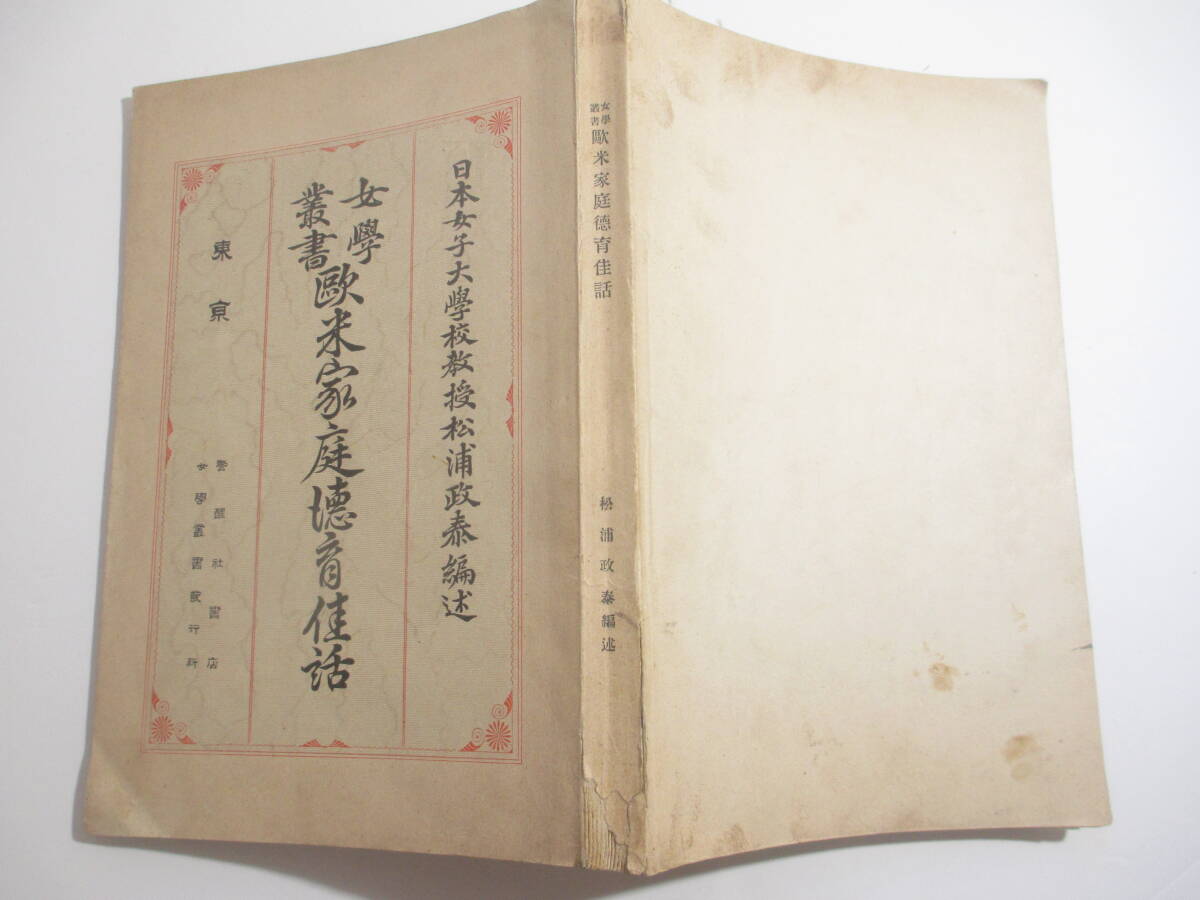 日本女子大學校教授松浦政泰編述
女學
叢書
歐米家庭德育佳話
東京
警醒社書店
女學叢書發行所
女學
叢書
歐米家庭德育佳話
松浦政泰編述